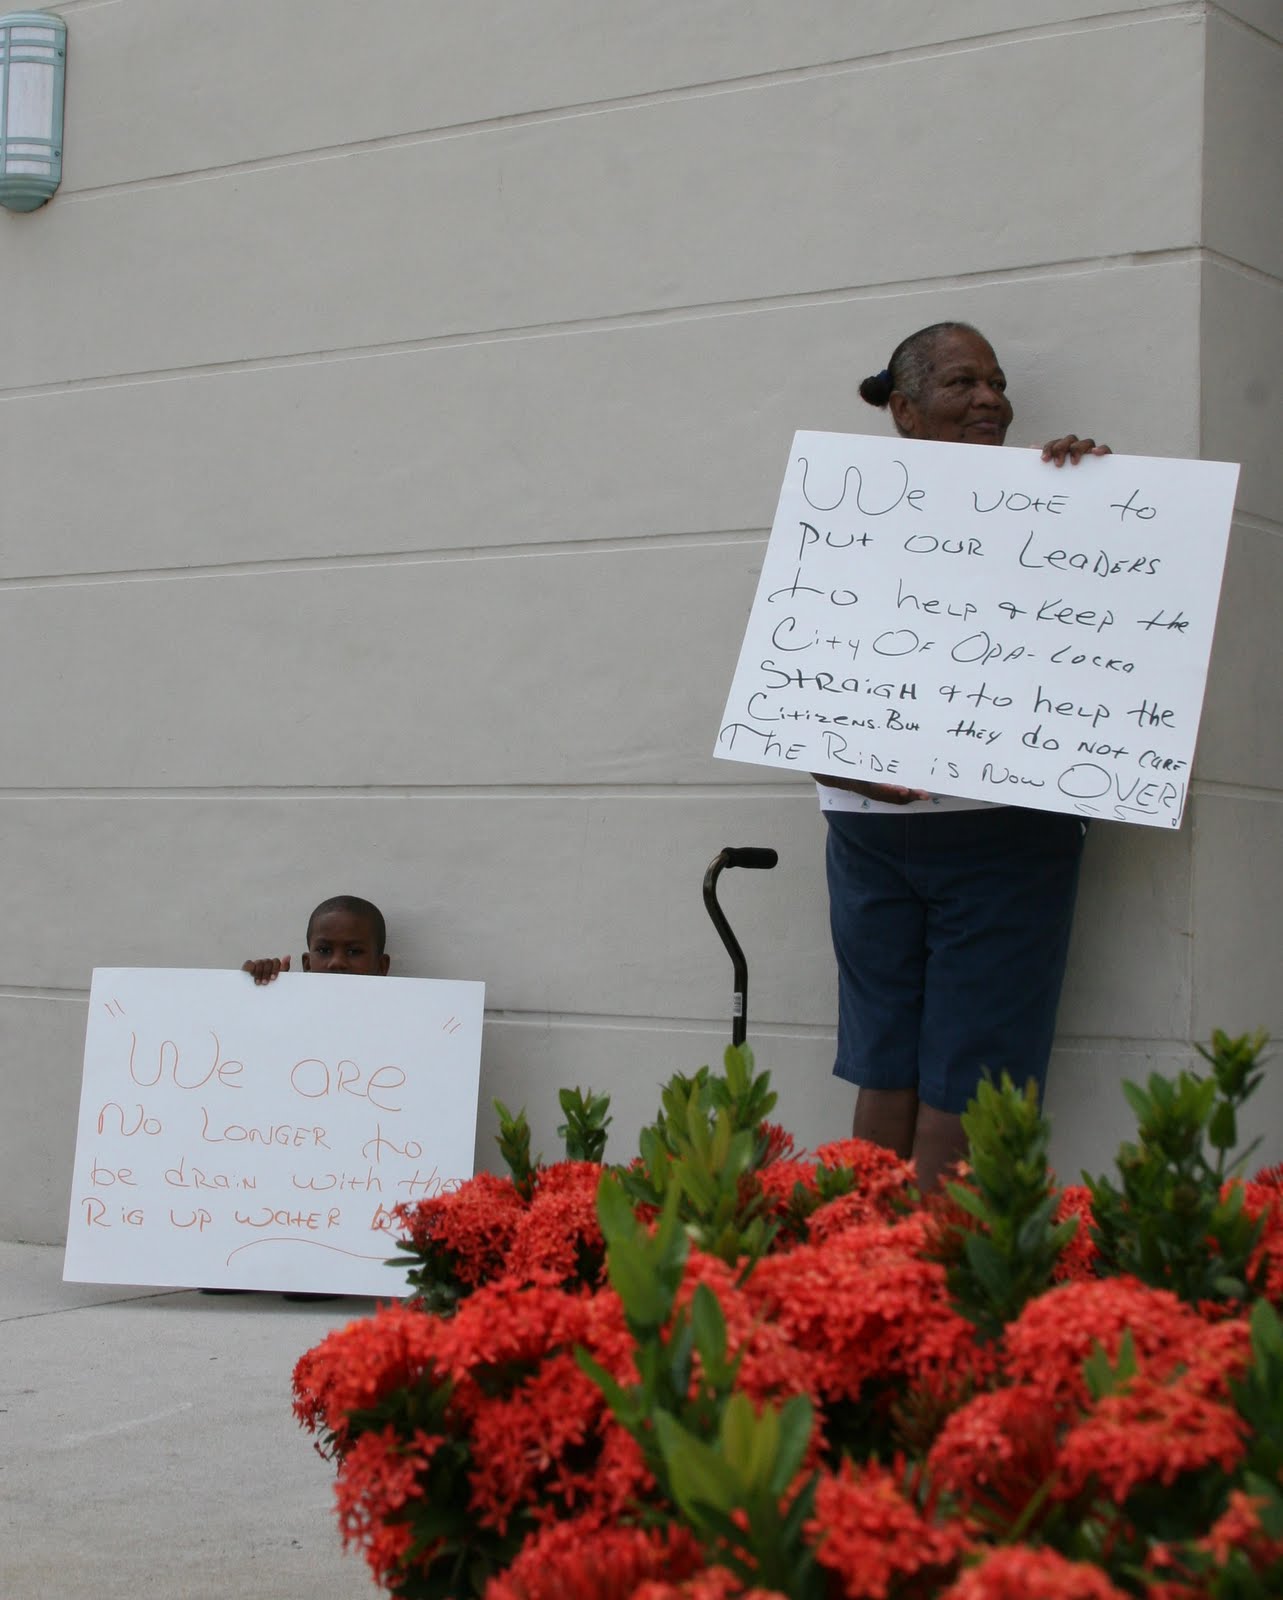 We VOTE to
PUT OUR LeaDERS
to help & Keep the
City OF OPA-LOCKA
STRaiGH & to help the
Citizens. But they do NOT CARE
The RiDE is Now OVER!
" "
We are
No LONGER to
be drain with the
RiG UP water